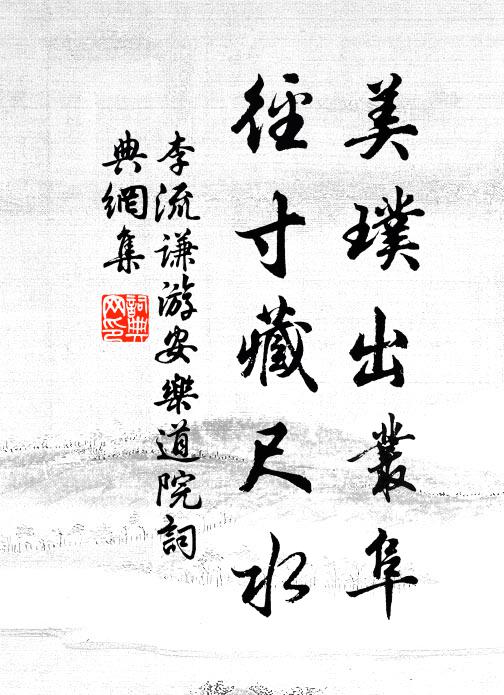 美璞出叢阜
徑寸藏尺水
李流謙游安樂道院詞
典網集
詞典網印